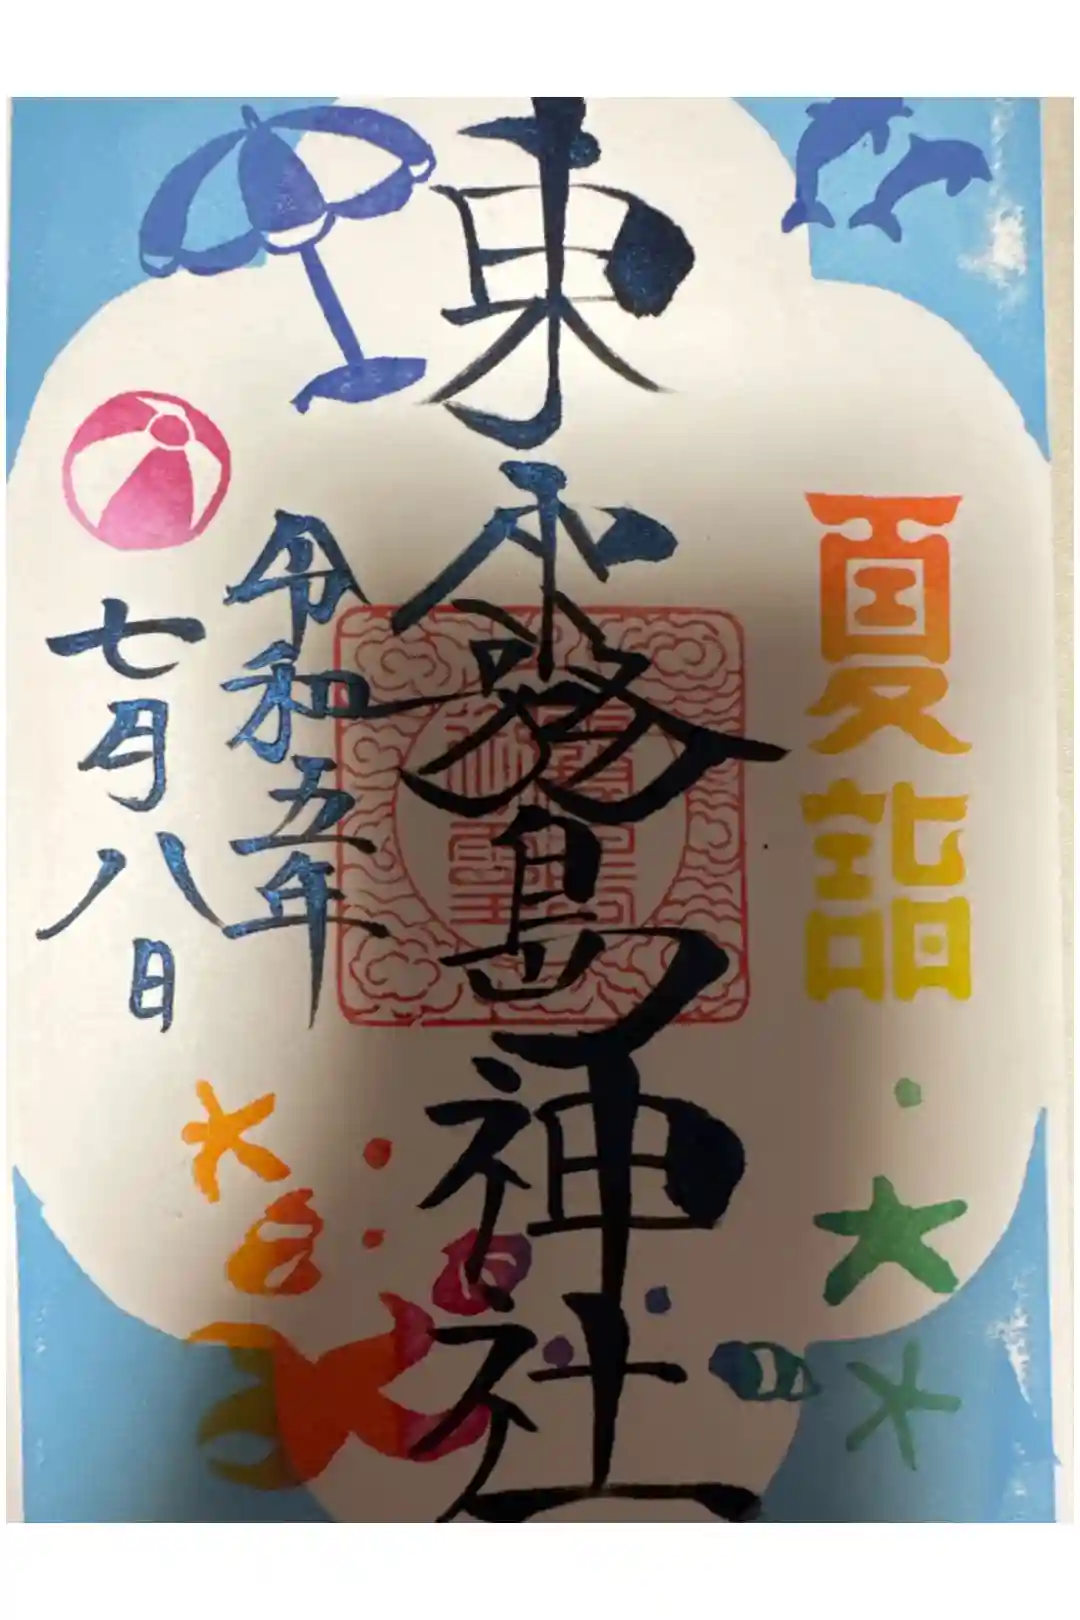 夏詣
東霧島神社
令和五年
七月八日